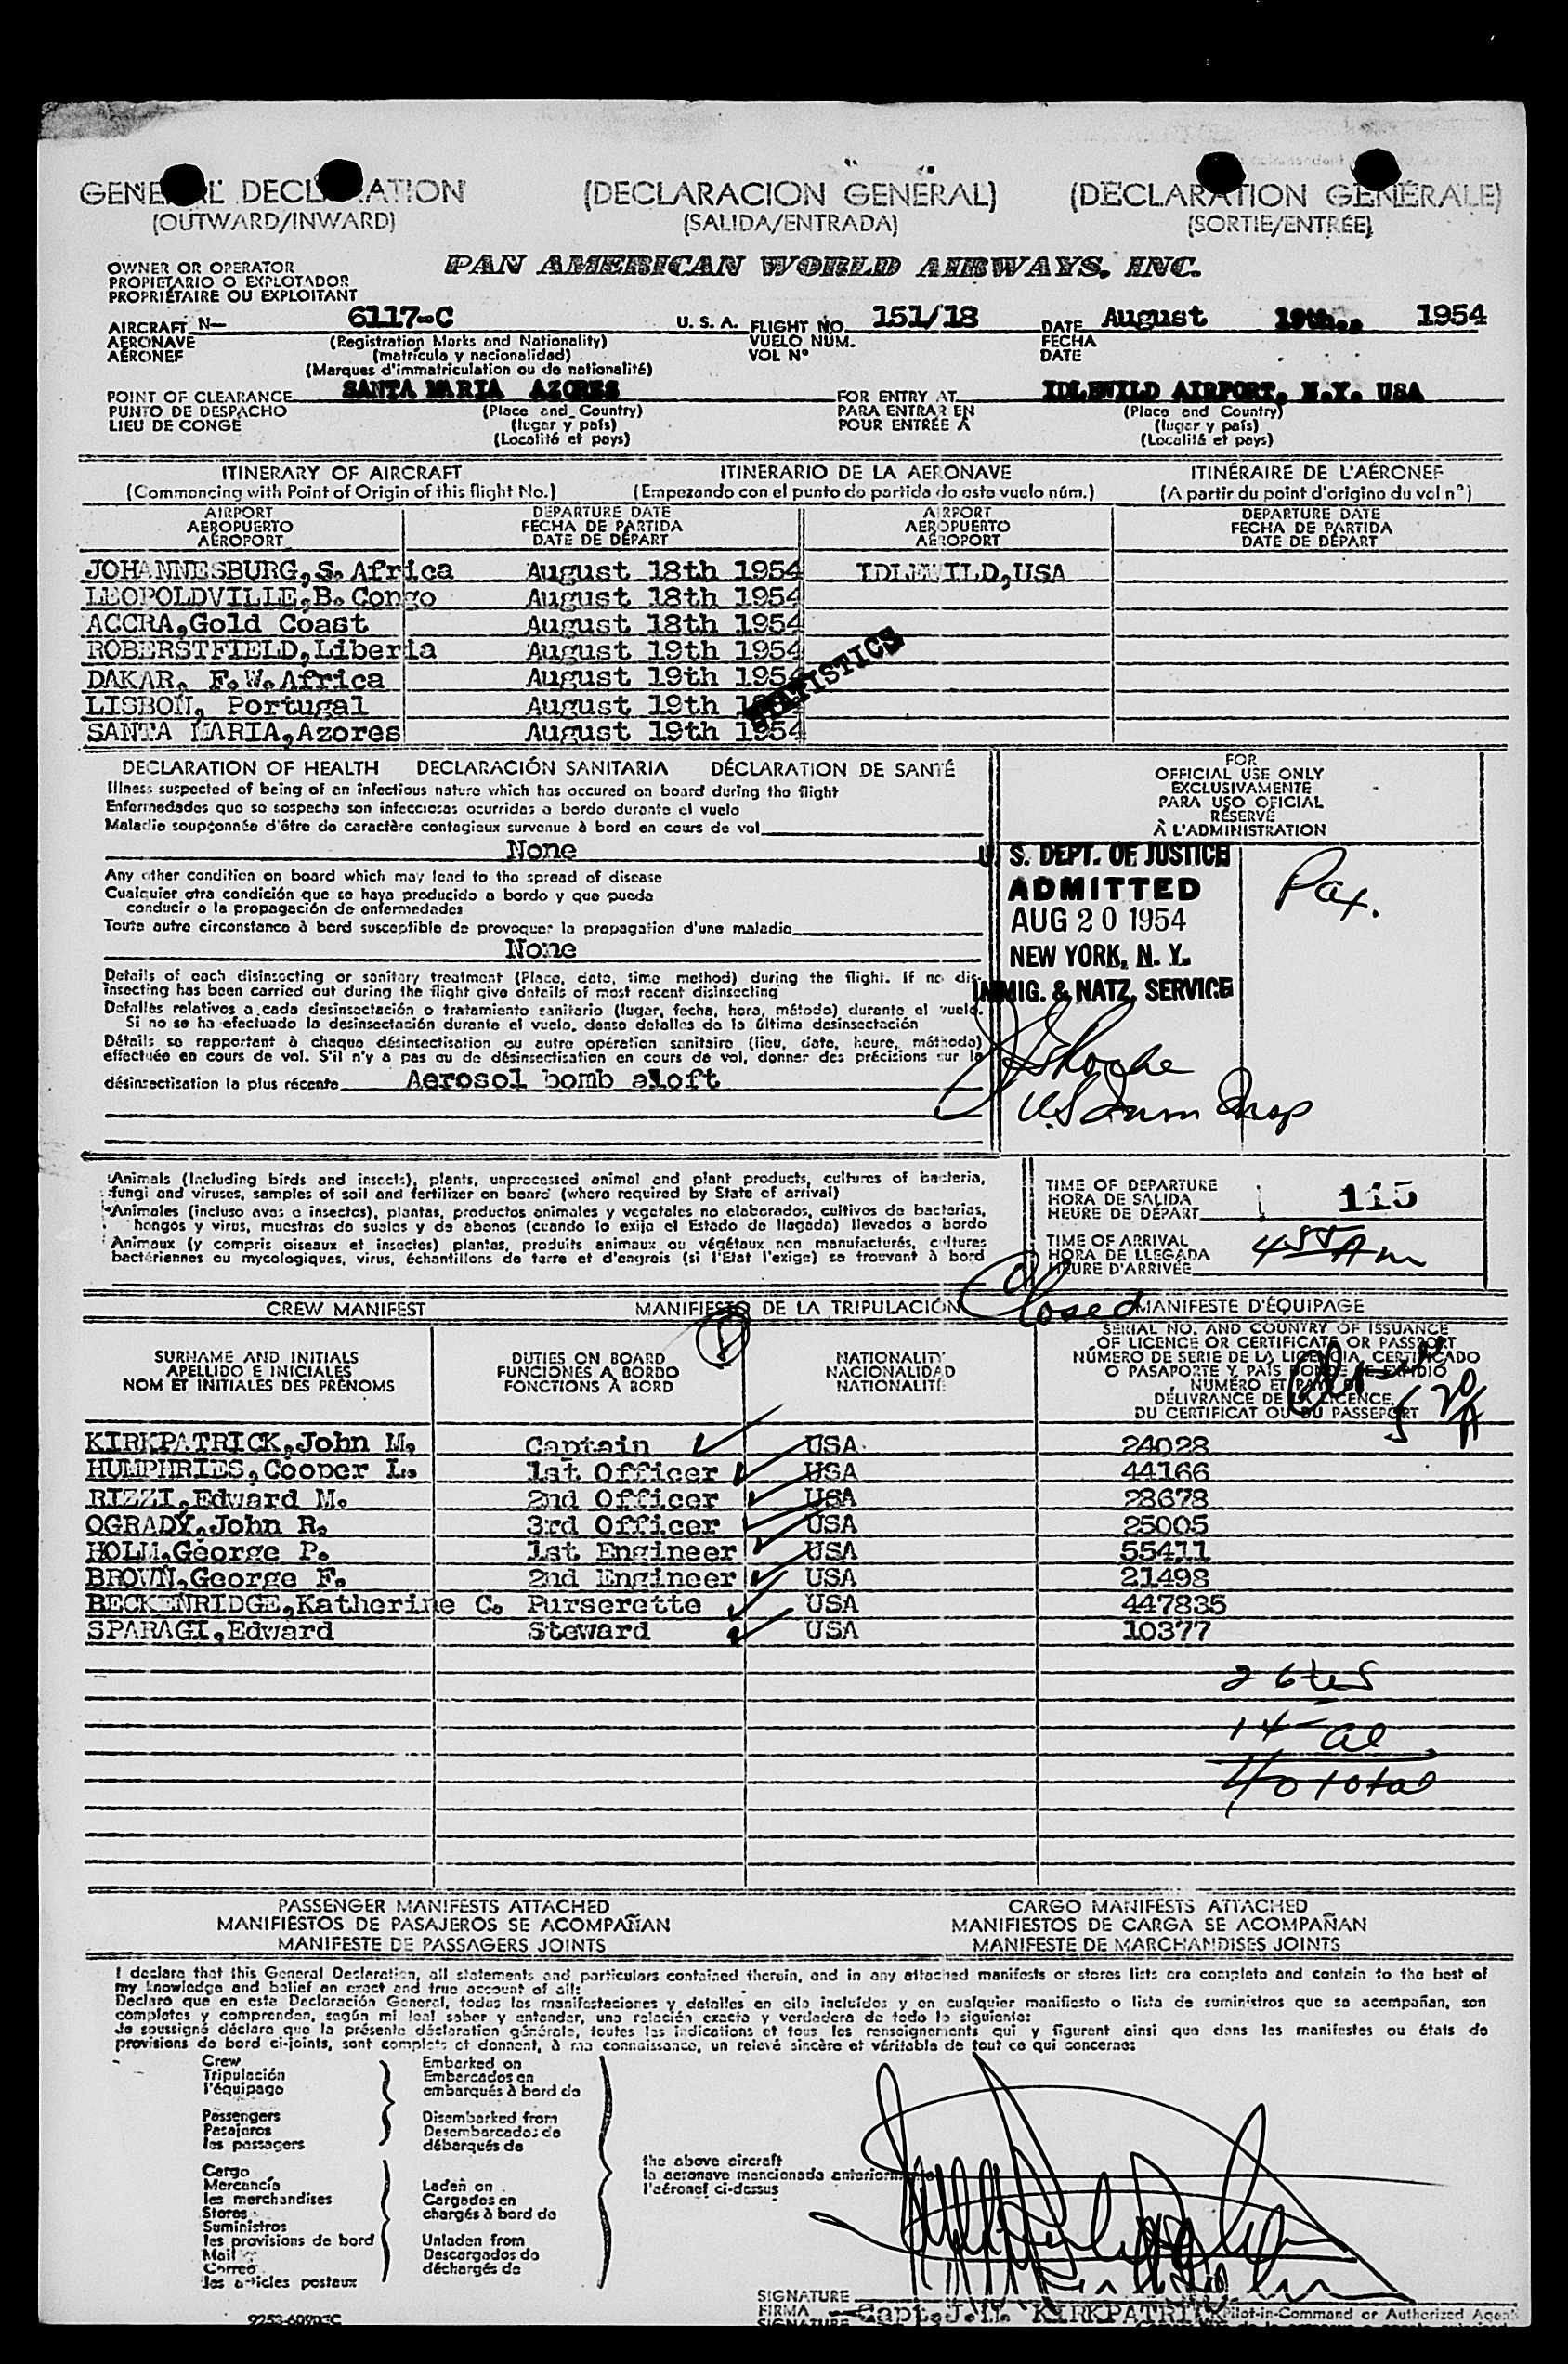 GENERAL DECLARATION (DECLARACION GENERAL) (DÉCLARATION GÉNÉRALE)
(OUTWARD/INWARD) (SALIDA/ENTRADA) (SORTIE/ENTRÉE)
OWNER OR OPERATOR PAN AMERICAN WORLD AIRWAYS, INC.
PROPIETARIO O EXPLOTADOR
PROPRIÉTAIRE OU EXPLOITANT
AIRCRAFT N— 6117-C U. S. A. FLIGHT NO. 151/18 DATE August 19th., 1954
AERONAVE (Registration Marks and Nationality) VUELO NÚM. FECHA
AÉRONEF (matrícula y nacionalidad) VOL Nº DATE
(Marques d'immatriculation ou de nationalité)
POINT OF CLEARANCE SANTA MARIA AZORES FOR ENTRY AT IDLEWILD AIRPORT, N.Y. USA
PUNTO DE DESPACHO (Place and Country) PARA ENTRAR EN (Place and Country)
LIEU DE CONGÉ (lugar y país) POUR ENTRÉE À (lugar y país)
(Localité et pays) (Localité et pays)
ITINERARY OF AIRCRAFT ITINERARIO DE LA AERONAVE ITINÉRAIRE DE L'AÉRONEF
(Commencing with Point of Origin of this flight No.) (Empezando con el punto de partida de este vuelo núm.) (A partir du point d'origine du vol nº)
AIRPORT DEPARTURE DATE AIRPORT DEPARTURE DATE
AEROPUERTO FECHA DE PARTIDA AEROPUERTO FECHA DE PARTIDA
AÉROPORT DATE DE DÉPART AÉROPORT DATE DE DÉPART
JOHANNESBURG,S.Africa August 18th 1954 IDLEWILD,USA
LEOPOLDVILLE,B.Congo August 18th 1954
ACCRA,Gold Coast August 18th 1954
ROBERSTFIELD,Liberia August 19th 1954
DAKAR, F.W.Africa August 19th 1954
LISBON, Portugal August 19th 1954
SANTA MARIA,Azores August 19th 1954
STATISTICS
DECLARATION OF HEALTH DECLARACIÓN SANITARIA DÉCLARATION DE SANTÉ
Illness suspected of being of an infectious nature which has occured on board during the flight
Enfermedades que se sospecha son infecciosas ocurridas a bordo durante el vuelo
Maladie soupçonnée d'être de caractère contagieux survenue à bord en cours de vol
None
Any other condition on board which may lead to the spread of disease
Cualquier otra condición que se haya producido a bordo y que pueda
conducir a la propagación de enfermedades
Toute autre circonstance à bord susceptible de provoquer la propagation d'une maladie
None
Details of each disinsecting or sanitary treatment (Place, date, time method) during the flight. If no dis-
insecting has been carried out during the flight give details of most recent disinsecting
Detalles relativos a cada desinsectación o tratamiento sanitario (lugar, fecha, hora, método) durante el vuelo.
Si no se ha efectuado la desinsectación durante el vuelo, dense detalles de la última desinsectación
Détails se rapportent à chaque désinsectisation ou autre opération sanitaire (lieu, date, heure, méthode)
effectuée en cours de vol. S'il n'y a pas eu de désinsectisation en cours de vol, donner des précisions sur la
désinsectisation la plus récente Aerosol bomb aloft
FOR
OFFICIAL USE ONLY
EXCLUSIVAMENTE
PARA USO OFICIAL
RÉSERVÉ
À L'ADMINISTRATION
U. S. DEPT. OF JUSTICE
ADMITTED
AUG 20 1954
NEW YORK, N. Y.
IMMIG. & NATZ. SERVICE
Pax.
US Imm Insp
Animals (Including birds and insects), plants, unprocessed animal and plant products, cultures of bacteria,
fungi and viruses, samples of soil and fertilizer on board (where required by State of arrival)
Animales (incluso aves e insectos), plantas, productos animales y vegetales no elaborados, cultivos de bacterias,
hongos y virus, muestras de suelos y de abonos (cuando lo exija el Estado de llegada) llevados a bordo
Animaux (y compris oiseaux et insectes) plantes, produits animaux ou végétaux non manufacturés, cultures
bactériennes ou mycologiques, virus, échantillons de terre et d'engrais (si l'Etat l'exige) se trouvant à bord
TIME OF DEPARTURE
HORA DE SALIDA 115
HEURE DE DÉPART
TIME OF ARRIVAL
HORA DE LLEGADA 455 Am
HEURE D'ARRIVÉE
Closed
CREW MANIFEST MANIFIESTO DE LA TRIPULACIÓN MANIFESTE D'ÉQUIPAGE
SURNAME AND INITIALS DUTIES ON BOARD NATIONALITY SERIAL NO. AND COUNTRY OF ISSUANCE
APELLIDO E INICIALES FUNCIONES A BORDO NACIONALIDAD OF LICENCE OR CERTIFICATE OR PASSPORT
NOM ET INITIALES DES PRÉNOMS FONCTIONS À BORD NATIONALITÉ NÚMERO DE SERIE DE LA LICENCIA, CERTIFICADO
O PASAPORTE Y PAÍS DONDE SE EXPIDIÓ
NUMÉRO ET PAYS DE
DÉLIVRANCE DE LA LICENCE,
DU CERTIFICAT OU DU PASSEPORT
5 20 A
KIRKPATRICK,John M. Captain USA 24028
HUMPHRIES,Cooper L. 1st Officer USA 44166
RIZZI,Edward M. 2nd Officer USA 28678
OGRADY,John R. 3rd Officer USA 25005
HOLM,George P. 1st Engineer USA 55411
BROWN,George F. 2nd Engineer USA 21498
BECKENRIDGE,Katherine C. Purserette USA 447835
SPARAGI,Edward Steward USA 10377
14 - al
40 total
PASSENGER MANIFESTS ATTACHED CARGO MANIFESTS ATTACHED
MANIFIESTOS DE PASAJEROS SE ACOMPAÑAN MANIFIESTOS DE CARGA SE ACOMPAÑAN
MANIFESTE DE PASSAGERS JOINTS MANIFESTE DE MARCHANDISES JOINTS
I declare that this General Declaration, all statements and particulars contained therein, and in any attached manifests or stores lists are complete and contain to the best of
my knowledge and belief an exact and true account of all:
Declaro que en esta Declaración General, todas las manifestaciones y detalles en ella incluídos y en cualquier manifiesto o lista de suministros que se acompañan, son
completos y comprenden, según mi leal saber y entender, una relación exacta y verdadera de todo lo siguiente:
Je soussigné déclare que la présente déclaration générale, toutes les indications et tous les renseignements qui y figurent ainsi que dans les manifestes ou états de
provisions de bord ci-joints, sont complets et donnent, à ma connaissance, un relevé sincère et véritable de tout ce qui concerne:
Crew Embarked on
Tripulación Embarcados en
l'équipage embarqués à bord de
Passengers Disembarked from
Pasajeros Desembarcados de
les passagers débarqués de
the above aircraft
la aeronave mencionada anteriormente
l'aéronef ci-dessus
Cargo
Mercancía Laden on
les marchandises Cargados en
Stores chargés à bord de
Suministros
les provisions de bord Unladen from
Mail Descargados de
Correo déchargés de
les articles postaux
SIGNATURE
FIRMA Capt.J.M. KIRKPATRICK Pilot-in-Command or Authorized Agent
SIGNATURE